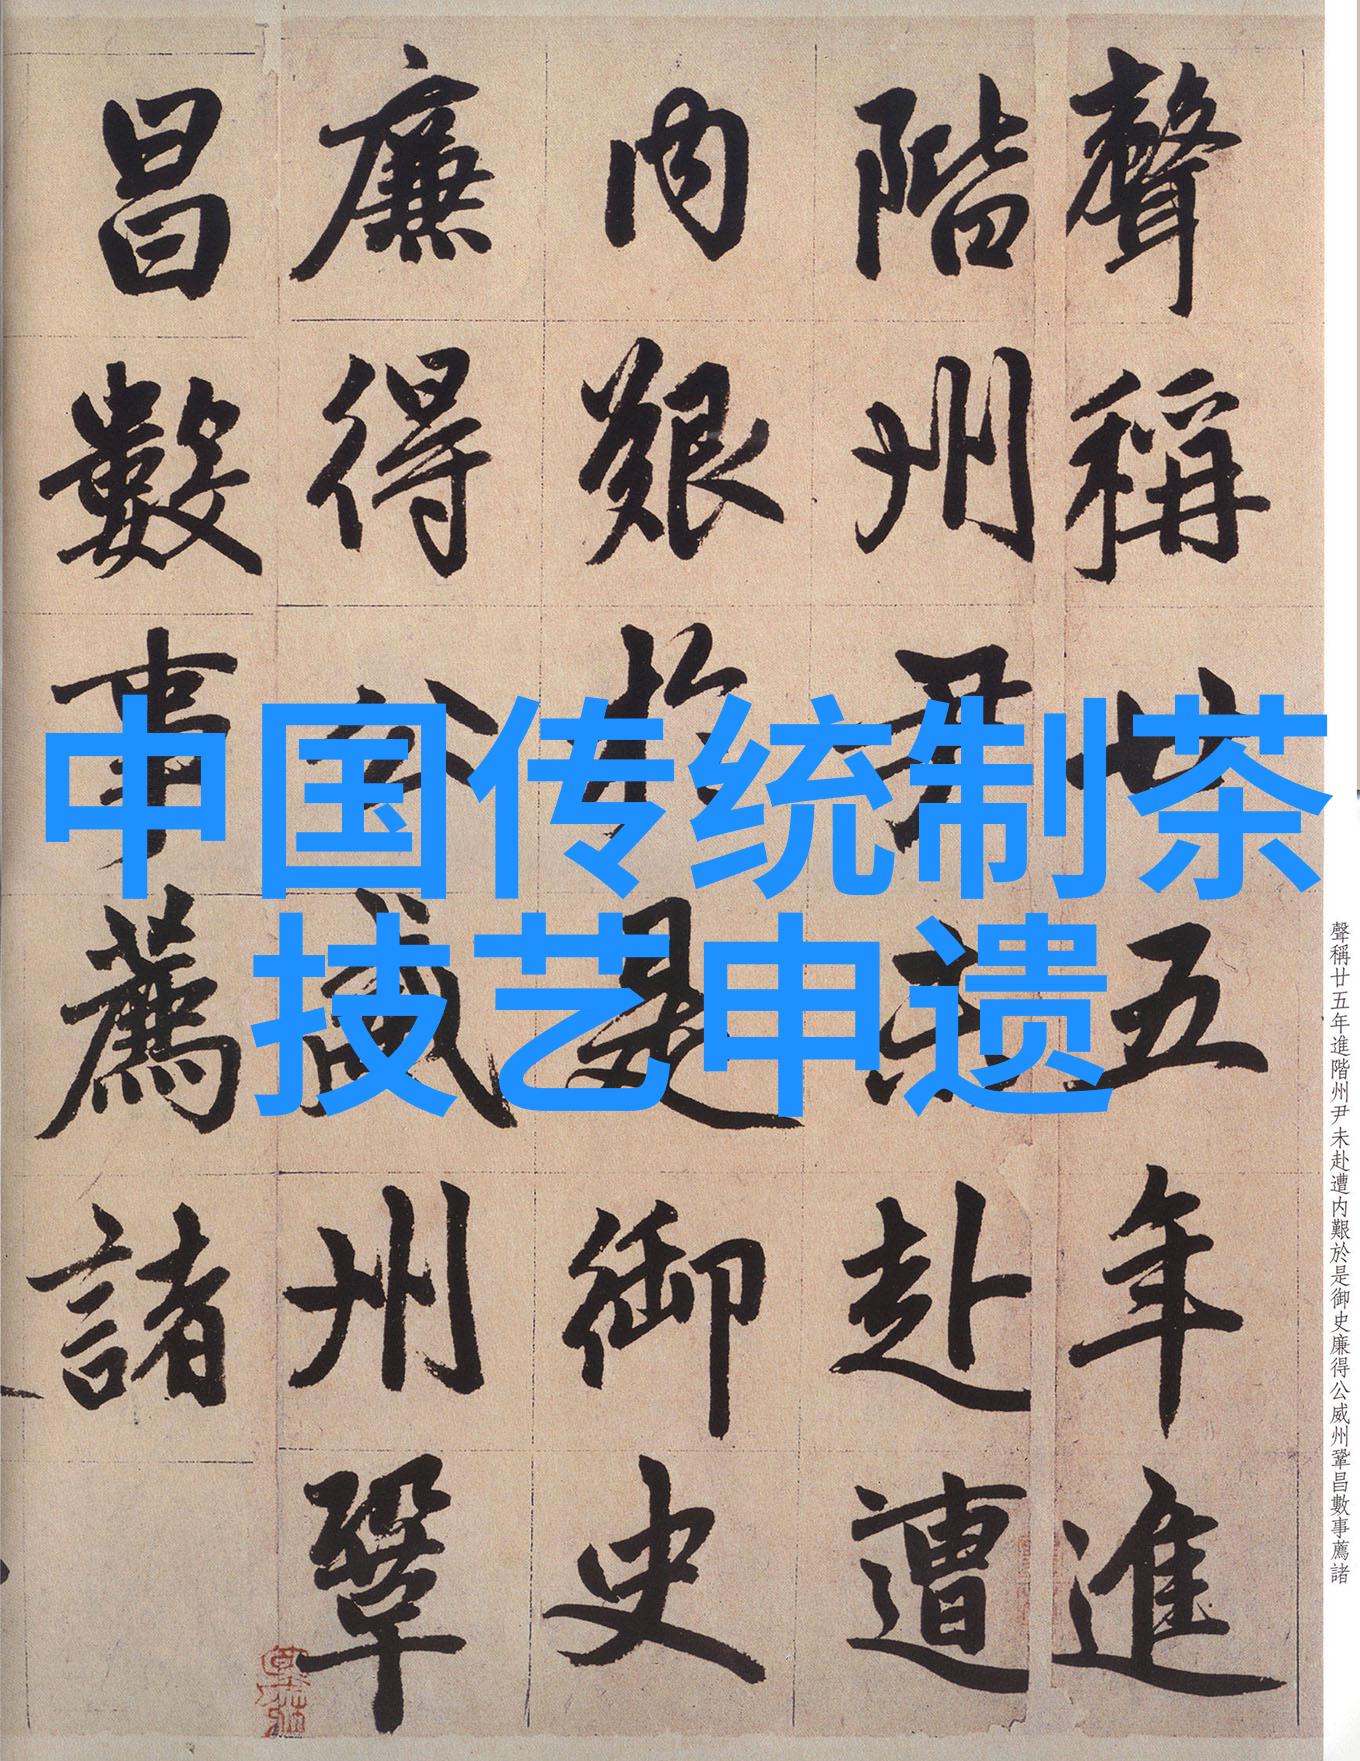 中国传统制茶
技艺申遗
聲稱廿五年進
階州尹未赴遭
内艱於是御史
廉得公威州鞏
昌數事薦諸
聲稱廿五年進階州尹未赴遭内艱於是御史廉得公威州鞏昌數事薦諸